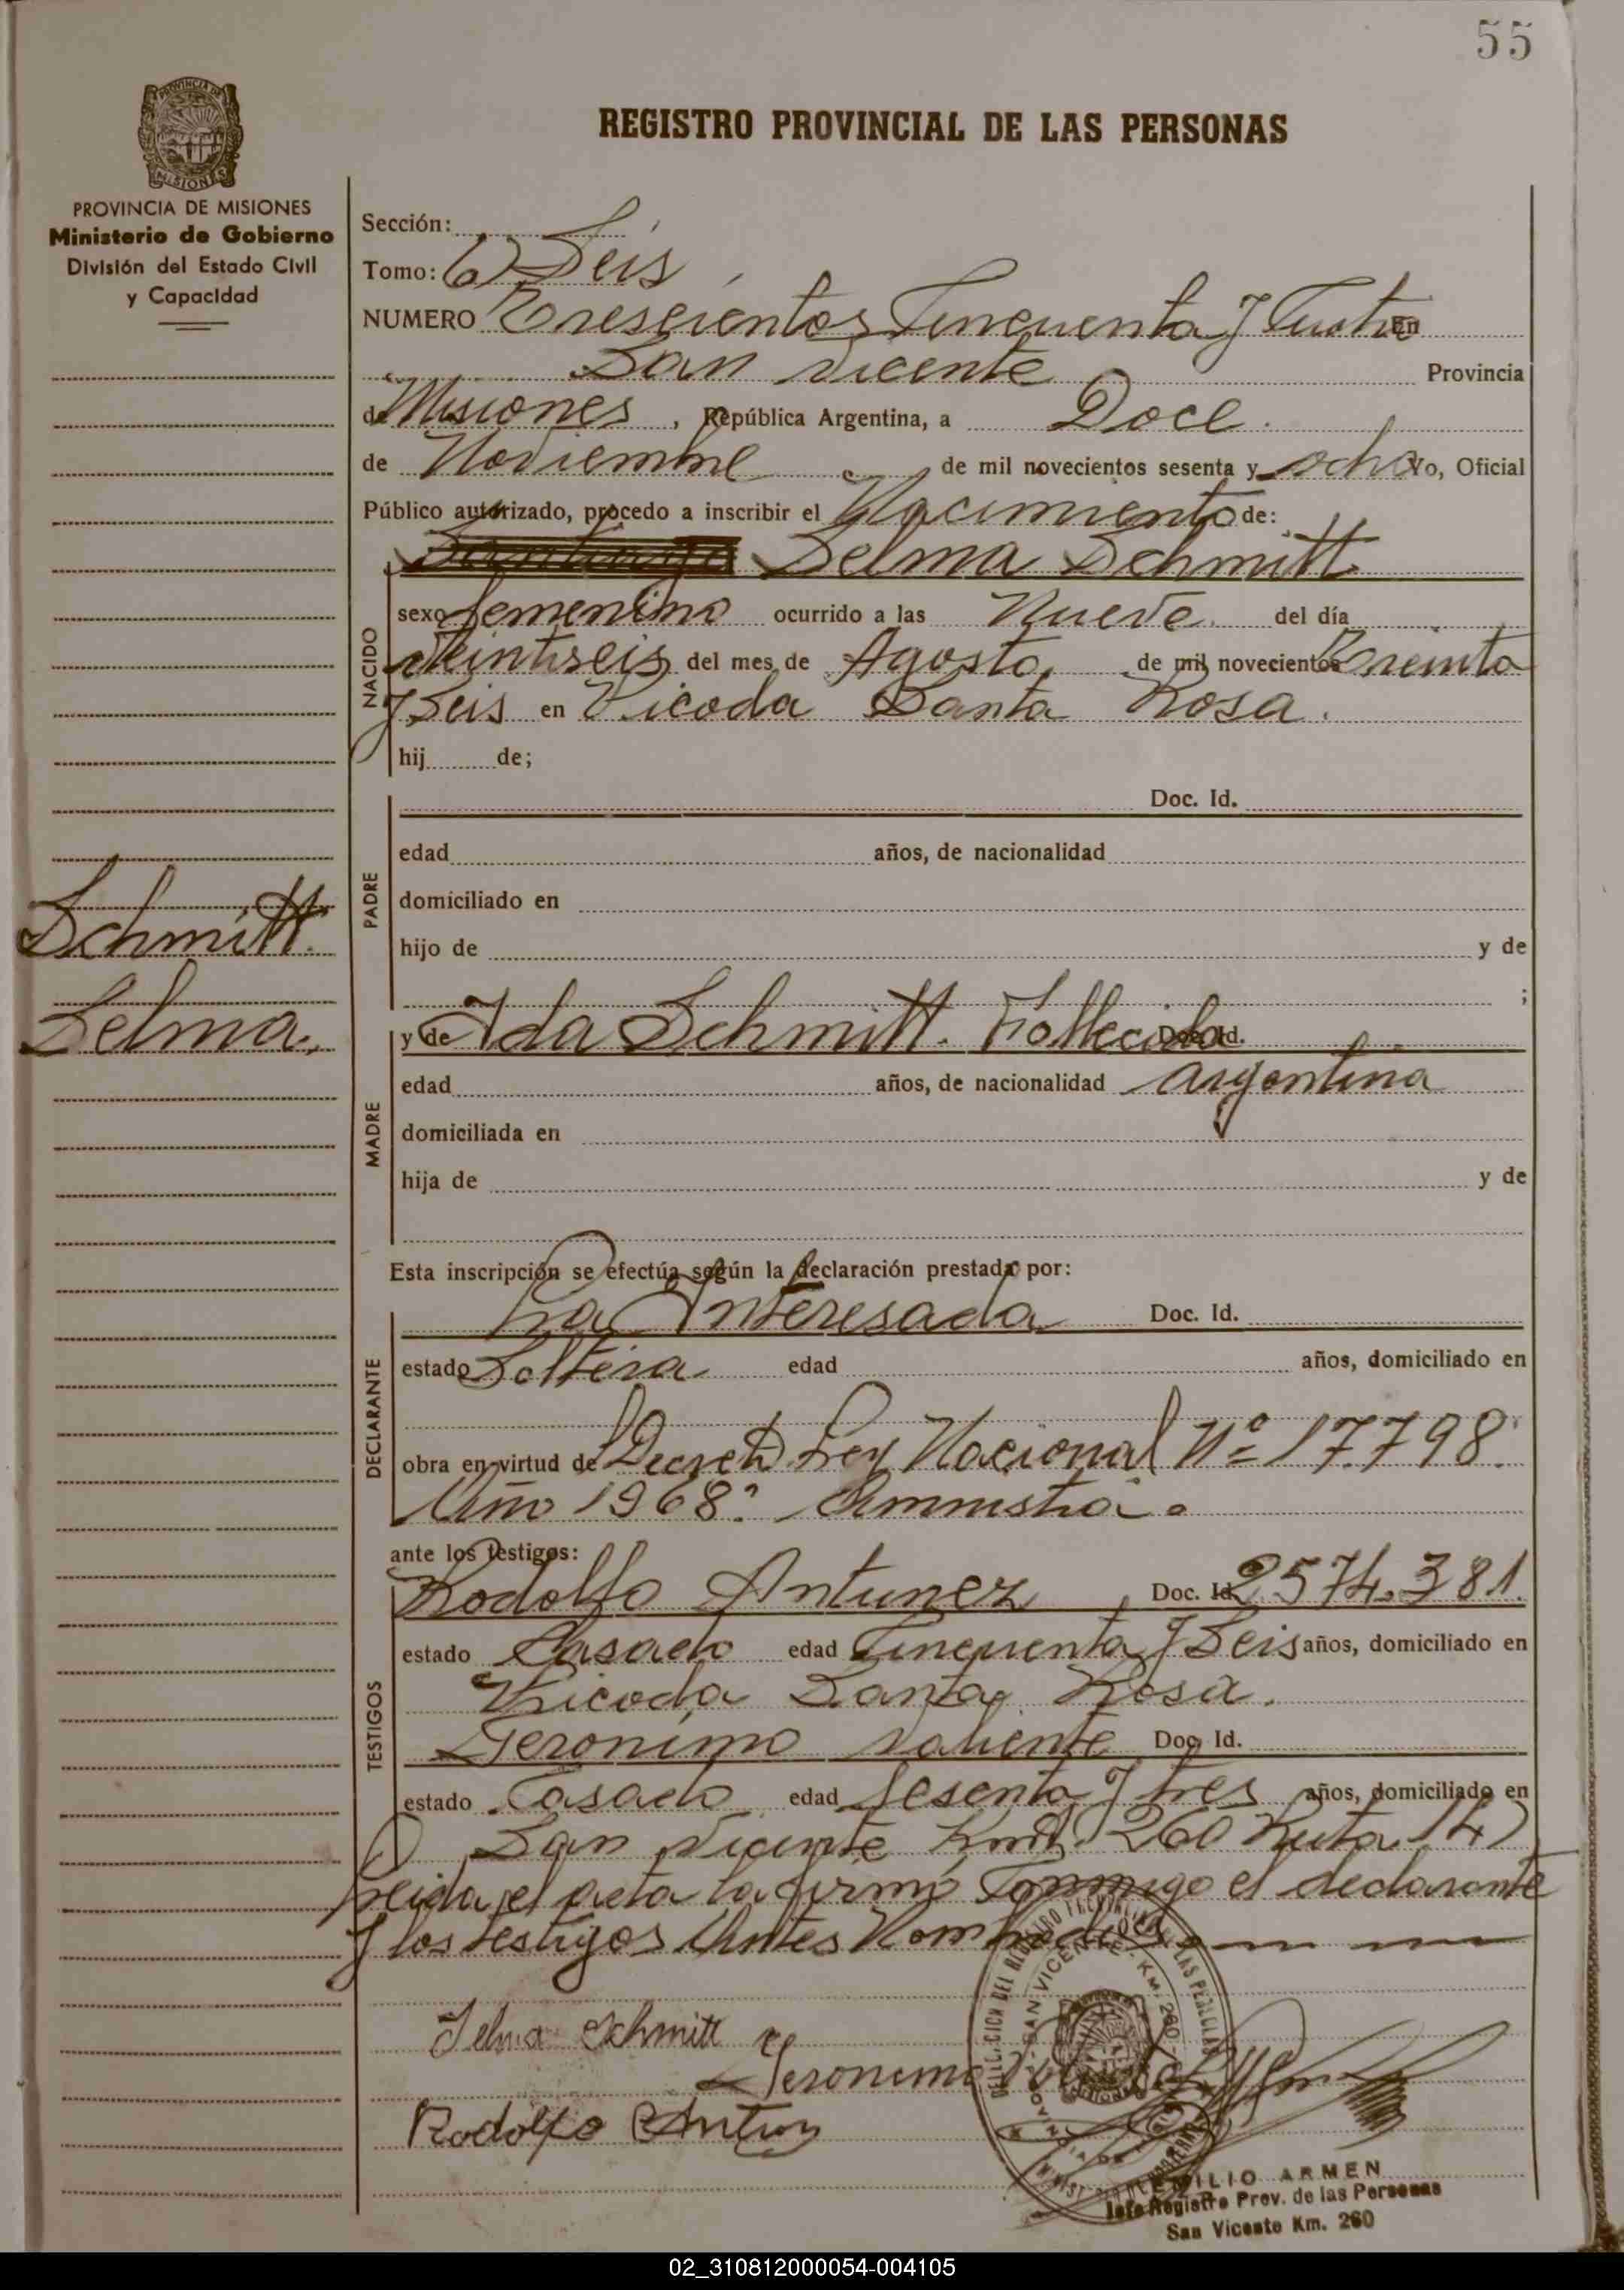 55
REGISTRO PROVINCIAL DE LAS PERSONAS
PROVINCIA DE MISIONES
Ministerio de Gobierno
División del Estado Civil
y Capacidad
Sección:
Tomo: 6) Seis
NUMERO Trescientos Cincuenta y Cuatro En
San Vicente Provincia
de Misiones, República Argentina, a Doce
de Noviembre de mil novecientos sesenta y ocho Yo, Oficial
Público autorizado, procedo a inscribir el Nacimiento de:
Selma Schmitt
NACIDO
sexo femenino ocurrido a las Nueve del día
Veintiseis del mes de Agosto de mil novecientos Treinta
y Seis en Picada Santa Rosa.
hij de;
PADRE
Doc. Id.
edad años, de nacionalidad
domiciliado en
hijo de y de
;
Schmitt
Selma
MADRE
y de Ida Schmitt. Fallecida Doc. Id.
edad años, de nacionalidad argentina
domiciliada en
hija de y de
Esta inscripción se efectúa según la declaración prestada por:
DECLARANTE
La Interesada Doc. Id.
estado Soltera edad años, domiciliado en
obra en virtud de Decreto Ley Nacional Nº 17.798.
Año 1968. Amnistia.
ante los testigos:
TESTIGOS
Rodolfo Antunez Doc. Id. 2.574.381.
estado Casado edad Cincuenta y Seis años, domiciliado en
Picada Santa Rosa.
Jeronimo Valiente Doc. Id.
estado Casado edad Sesenta y tres años, domiciliado en
San Vicente Km. 260 Ruta 14)
Leida el acta la firmó Conmigo el declarante
y los testigos Antes Nombrados
Selma Schmitt
Jeronimo
Rodolfo
SAN VICENTE - KM. 260
EMILIO ARMEN
Jefe Registro Prov. de las Personas
San Vicente Km. 260
02_310812000054-004105